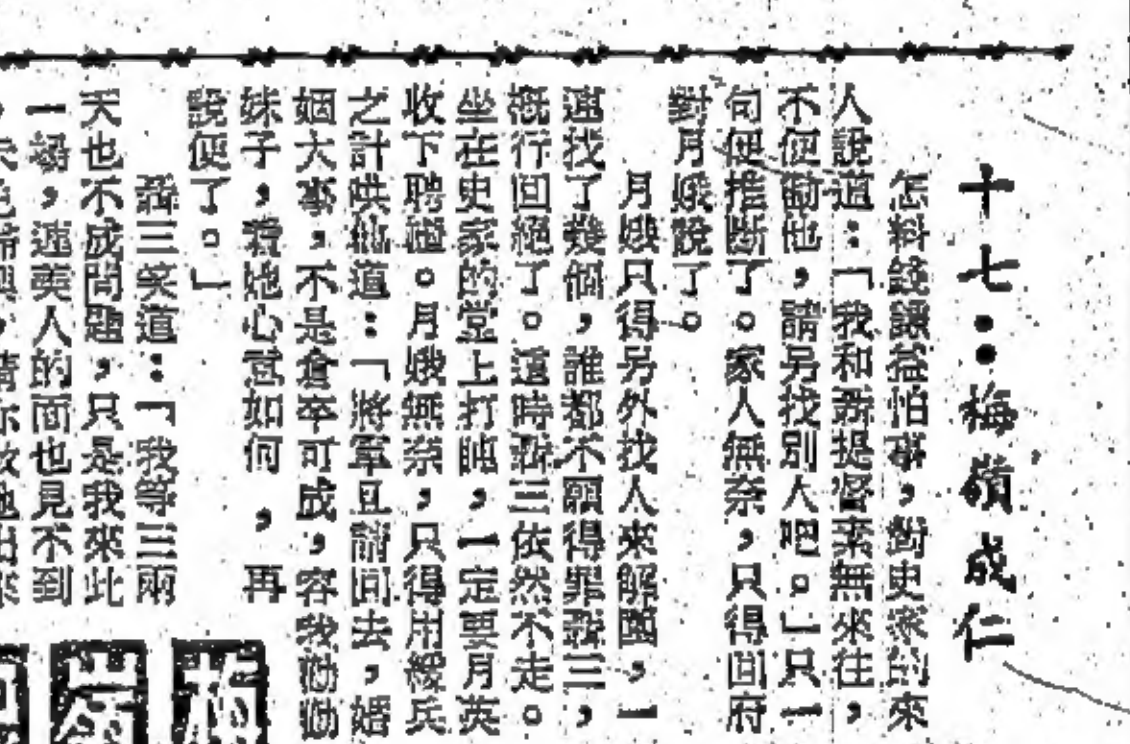 十七••梅嶺成仁
怎料錢謙益怕事,對史家的來
人說道:「我和孫提督素無來往,
不便勸他,請另找別人吧。」只一
句便推斷了。家人無奈,只得回府
對月娥說了。
月娥只得另外找人來解圍,一
連找了幾個,誰都不願得罪孫三,
槪行回絕了。這時孫三依然不走。
坐在史家的堂上打盹,一定要月英
收下聘禮。月娥無奈,只得用緩兵
之計哄他道:「將軍且請回去,婚
姻大事,不是倉卒可成,容我勸勸
妹子,看她心意如何,再
說便了。」
孫三笑道:「我等三兩
天也不成問題,只是我來此
一場,連美人的面也見不到
梅
嶺